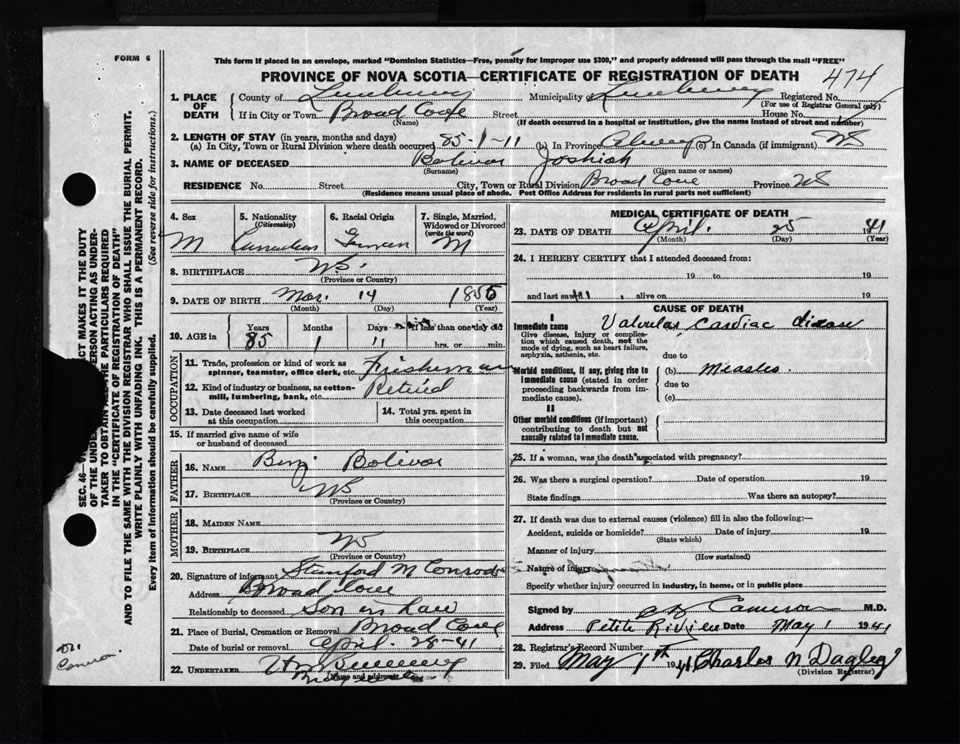 FORM 6
This form if placed in an envelope, marked "Dominion Statistics—Free, penalty for improper use $300," and properly addressed will pass through the mail "FREE"
PROVINCE OF NOVA SCOTIA—CERTIFICATE OF REGISTRATION OF DEATH 474
1. PLACE OF DEATH County of Lunenburg Municipality Lunenburg Registered No.
(For use of Registrar General only)
If in City or Town Broad Cove Street House No.
(Name) (If death occurred in a hospital or institution, give the name instead of street and number)
2. LENGTH OF STAY (in years, months and days)
(a) In City, Town or Rural Division where death occurred 85-1-11 (b) In Province Always (c) In Canada (if immigrant) NS
3. NAME OF DECEASED Bolivar Joshiah
(Surname) (Given name or names)
RESIDENCE No. Street City, Town or Rural Division Broad Cove Province NS
(Residence means usual place of abode. Post Office Address for residents in rural parts not sufficient)
4. Sex M
5. Nationality (Citizenship) Canadian
6. Racial Origin German
7. Single, Married, Widowed or Divorced (write the word) M
8. BIRTHPLACE NS
(Province or Country)
9. DATE OF BIRTH Mar. 14 1856
(Month) (Day) (Year)
10. AGE in Years Months Days If less than one day old
85 1 11 hrs. or min.
OCCUPATION
11. Trade, profession or kind of work as spinner, teamster, office clerk, etc. Fisherman
12. Kind of industry or business, as cotton-mill, lumbering, bank, etc. Retired
13. Date deceased last worked at this occupation
14. Total yrs. spent in this occupation
15. If married give name of wife or husband of deceased
FATHER
16. NAME Benj Bolivar
17. BIRTHPLACE NS
(Province or Country)
MOTHER
18. MAIDEN NAME
19. BIRTHPLACE NS
(Province or Country)
20. Signature of informant Stanford M Conrod
Address Broad Cove
Relationship to deceased Son in Law
21. Place of Burial, Cremation or Removal Broad Cove
Date of burial or removal April 28-41
22. UNDERTAKER
(Name and address)
MEDICAL CERTIFICATE OF DEATH
23. DATE OF DEATH April 25 1941
(Month) (Day) (Year)
24. I HEREBY CERTIFY that I attended deceased from:
19 to 19
and last saw h alive on 19
CAUSE OF DEATH
I
Immediate cause Valvular Cardiac disease
Give disease, injury or complication which caused death, not the mode of dying, such as heart failure, asphyxia, asthenia, etc.
due to
Morbid conditions, if any, giving rise to immediate cause (stated in order proceeding backwards from immediate cause).
(b) Measles.
due to
(c)
II
Other morbid conditions (if important) contributing to death but not causally related to immediate cause.
25. If a woman, was the death associated with pregnancy?
26. Was there a surgical operation? Date of operation 19
State findings Was there an autopsy?
27. If death was due to external causes (violence) fill in also the following:—
Accident, suicide or homicide? Date of injury 19
(State which)
Manner of injury
(How sustained)
Nature of injury
Specify whether injury occurred in industry, in home, or in public place
Signed by Cameron M.D.
Address Petite Riviere Date May 1 1941
28. Registrar's Record Number
29. Filed May 1th 1941 Charles N Dagley
(Division Registrar)
OF THE UNDER PERSON ACTING AS UNDER-
TAKER TO OBTAIN ALL THE PARTICULARS REQUIRED
IN THE "CERTIFICATE OF REGISTRATION OF DEATH"
AND TO FILE THE SAME WITH THE DIVISION REGISTRAR WHO SHALL ISSUE THE BURIAL PERMIT.
WRITE PLAINLY WITH UNFADING INK. THIS IS A PERMANENT RECORD.
Every item of information should be carefully supplied. (See reverse side for instructions.)
Cameron.